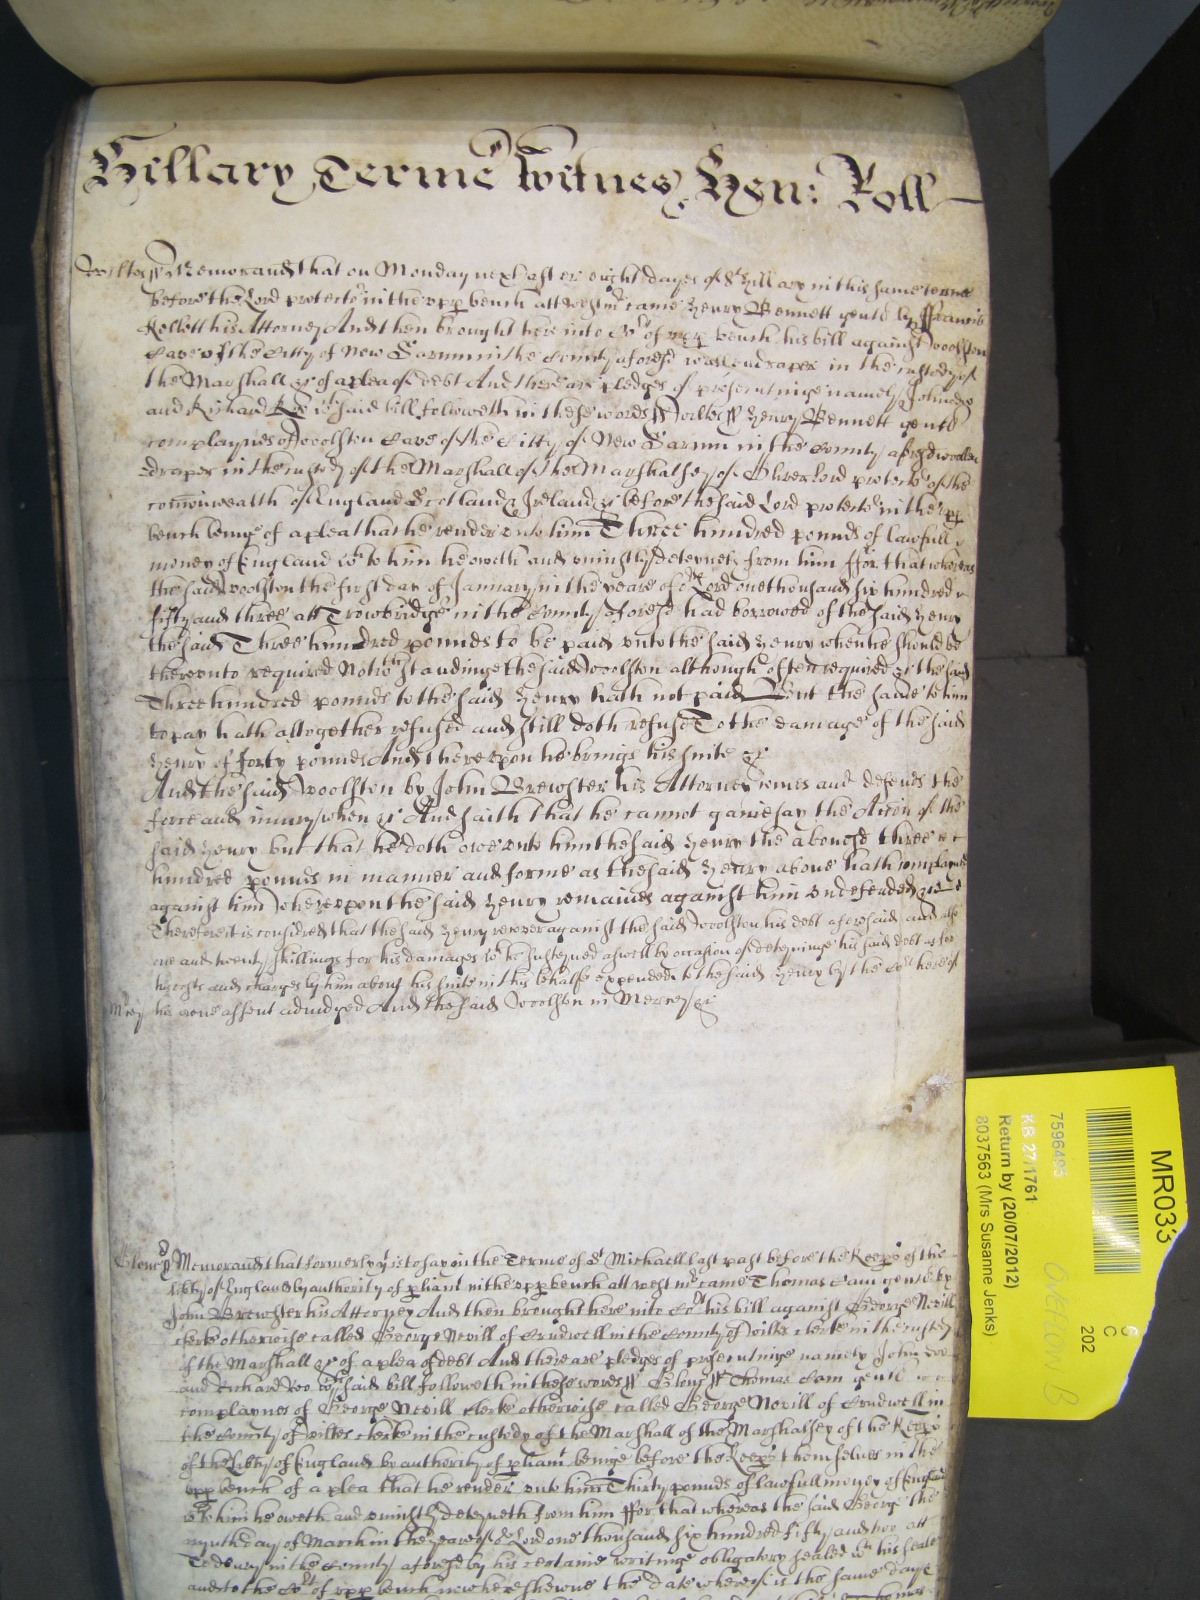 Hillary Terme Witnes Hen: Roll
Wiltes ss Memorand that on Monday next after eight dayes of St Hillary in this same terme
before the Lord protector in the upp bench att Westmr came Henry Bennett gent by Francis
Kellett his Attorney And then brought here into Cort of upp bench his bill against Woolston
Cave of the Citty of New Sarum in the County aforesd wollendraper in the custody of
the Marshall &c of a plea of debt And there are pledges of prosecutinge namely John Doo
and Richard Roo wch said bill followeth in these words ss Wiltes ss Henry Bennett gent
complaynes of Woolston Cave of the Citty of New Sarum in the County aforesd wollen
draper in the custody of the Marshall of the Marshalsey of Lord protector of the
comonwealth of England Scotland & Ireland &c before the said Lord protector in the upp
bench beinge of a plea that he render unto him Three hundred pounds of lawfull
money of England wch to him he oweth and uniustly deteyneth from him ffor that whereas
the said Woolston the first day of January in the yeare of our Lord one thousand six hundred
fifty and three att Trowbridge in the County aforesd had borrowed of the said Henry
the said Three hundred pounds to be paid unto the said Henry when he should be
thereunto required Notwthstandinge the said Woolston although often required &c the said
Three hundred pounds to the said Henry hath not paid But the same to him
to pay hath altogether refused and still doth refuse To the damage of the said
Henry of forty pounds And thereupon he brings his suite &c
And the said Woolston by John Brewster his Attorney comes and defends the
force and iniury when &c And saith that he cannot gainesay the Accon of the
said Henry but that he doth owe unto him the said Henry the abovesd three
hundred pounds in manner and forme as the said Henry above hath complayned
against him Whereupon the said Henry remaines against him undefended &c
Therefore it is considred that the said Henry recover against the said Woolston his debt aforesaid and
one and twenty shillings for his damages wch he susteyned aswell by occasion of deteyninge his said debt as for
his costs and charges by him about his suite in this behalfe expended to the said Henry by the Cort here of
Mrcy his owne assent adiudged And the said Woolston in Mercy &c
Glouc ss Memorand that formerly yt is to say in the Terme of St Michaell last past before the Keeprs of the
libty of England by authority of pliamt in the upp bench att Westmr came Thomas Cam gent by
John Brewster his Attorney And then brought here into Cort his bill against George Nevill
clerke otherwise called George Nevill of Crudwell in the County of Wiltes clerke in the custody
of the Marshall &c of a plea of debt And there are pledges of prosecutinge namely John Doo
and Richard Roo wch said bill followeth in these words ss Glouc ss Thomas Cam gent
complaynes of George Nevill clerke otherwise called George Nevill of Crudwell in
the County of Wiltes clerke in the custody of the Marshall of the Marshalsey of the Keeprs
of the Libty of England by authority of pliamt beinge before the Keeprs themselves in the
upp bench of a plea that he render unto him Thirty pounds of lawfull money of England
wch to him he oweth and uniustly deteyneth from him ffor that whereas the said George the
nynth day of March in the yeare of or Lord one thousand six hundred fifty and two att
Tedbury in the County aforesd by his certaine writinge obligatory sealed wth his seale
and to the Cort of upp bench now here shewne the date whereof is the same day &
MR033
202
C
7596495
KB 27/1761
Return by (20/07/2012)
8037563 (Mrs Susanne Jenks)
OVERFLOW B